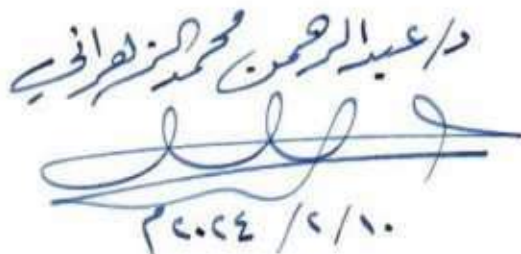 د/ عبدالرحمن محمد الزهراني
٢٠٢٤ / ٢ / ١٠م